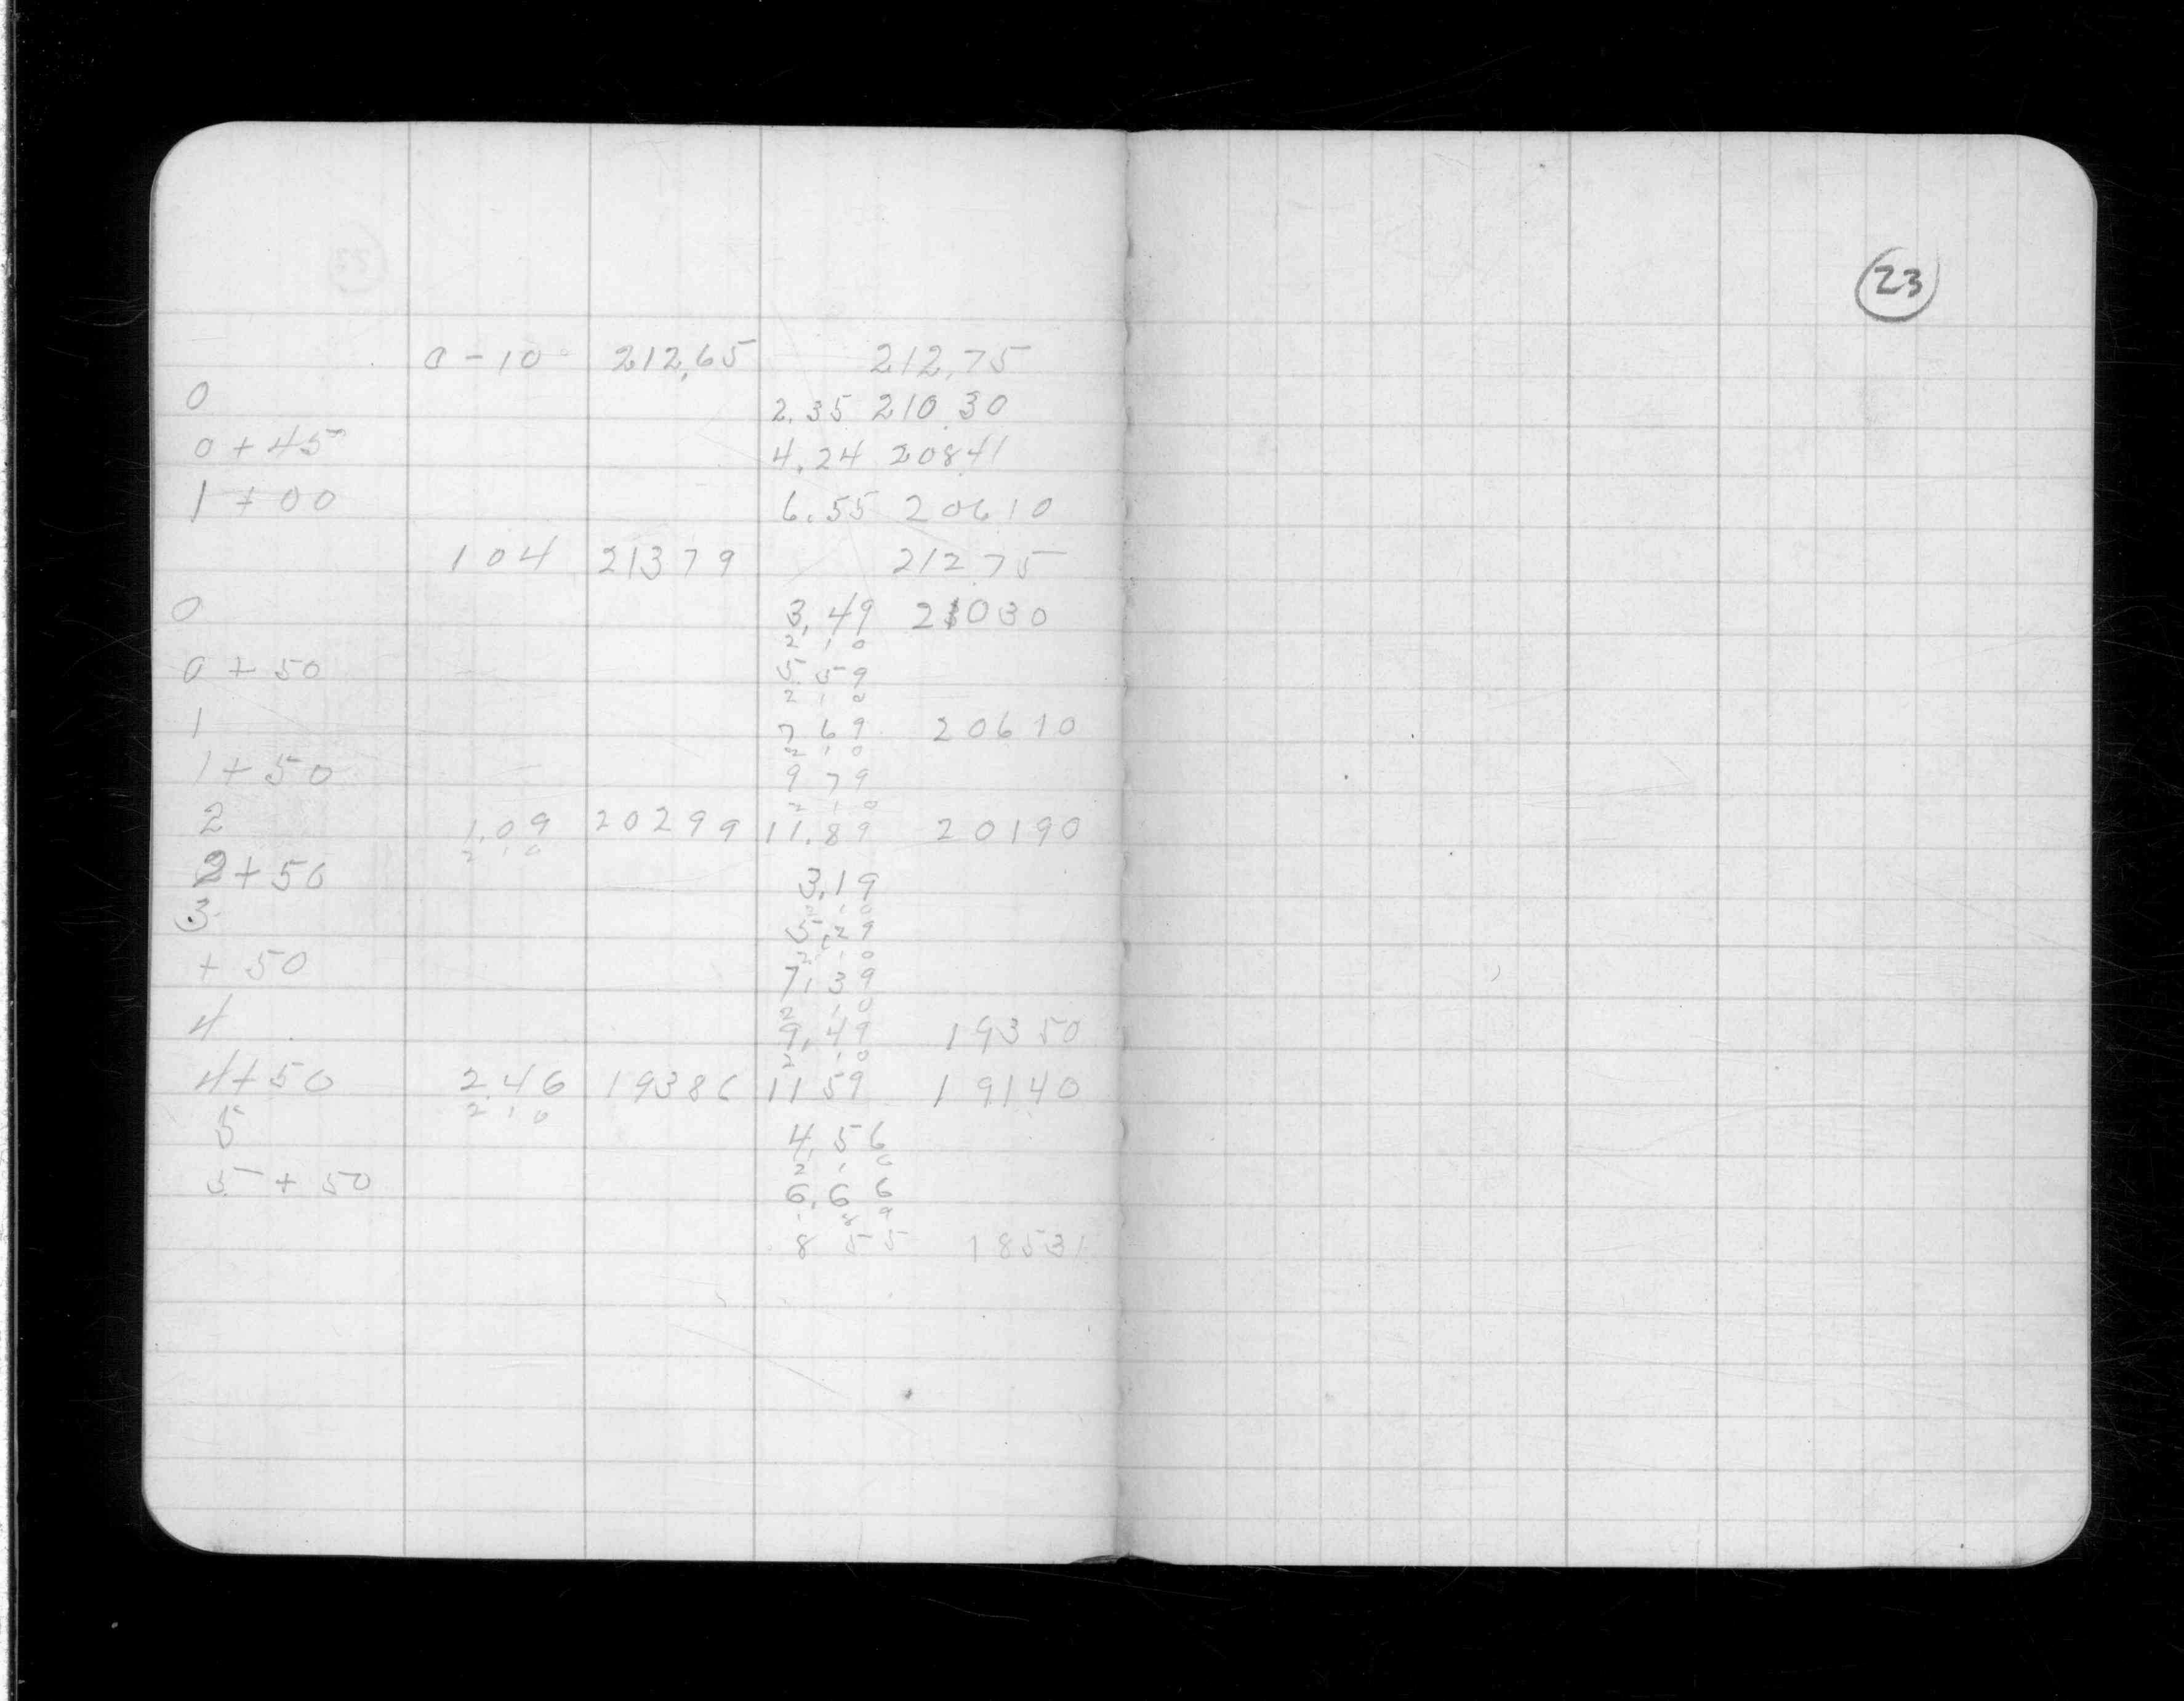 0 - 10 212.65 212.75
0 2.35 210.30
0 + 45 4.24 20841
1 + 00 6.55 20610
104 21379 212.75
0 3.49 21030
2 1 0
0 + 50 5.59
2 1 0
1 7 69 20610
2 1 0
1 + 50 9 79
2 1 0
2 1.09 20299 11.89 20190
2 1 0
2 + 50 3.19
2 1 0
3 5.29
2 1 0
+ 50 7.39
2 1 0
4 9.49 19350
2 1 0
4 + 50 2.46 19386 11 59 19140
2 1 0
5 4.56
2 1 0
5 + 50 6.66
1 8 9
8 55 18531
23